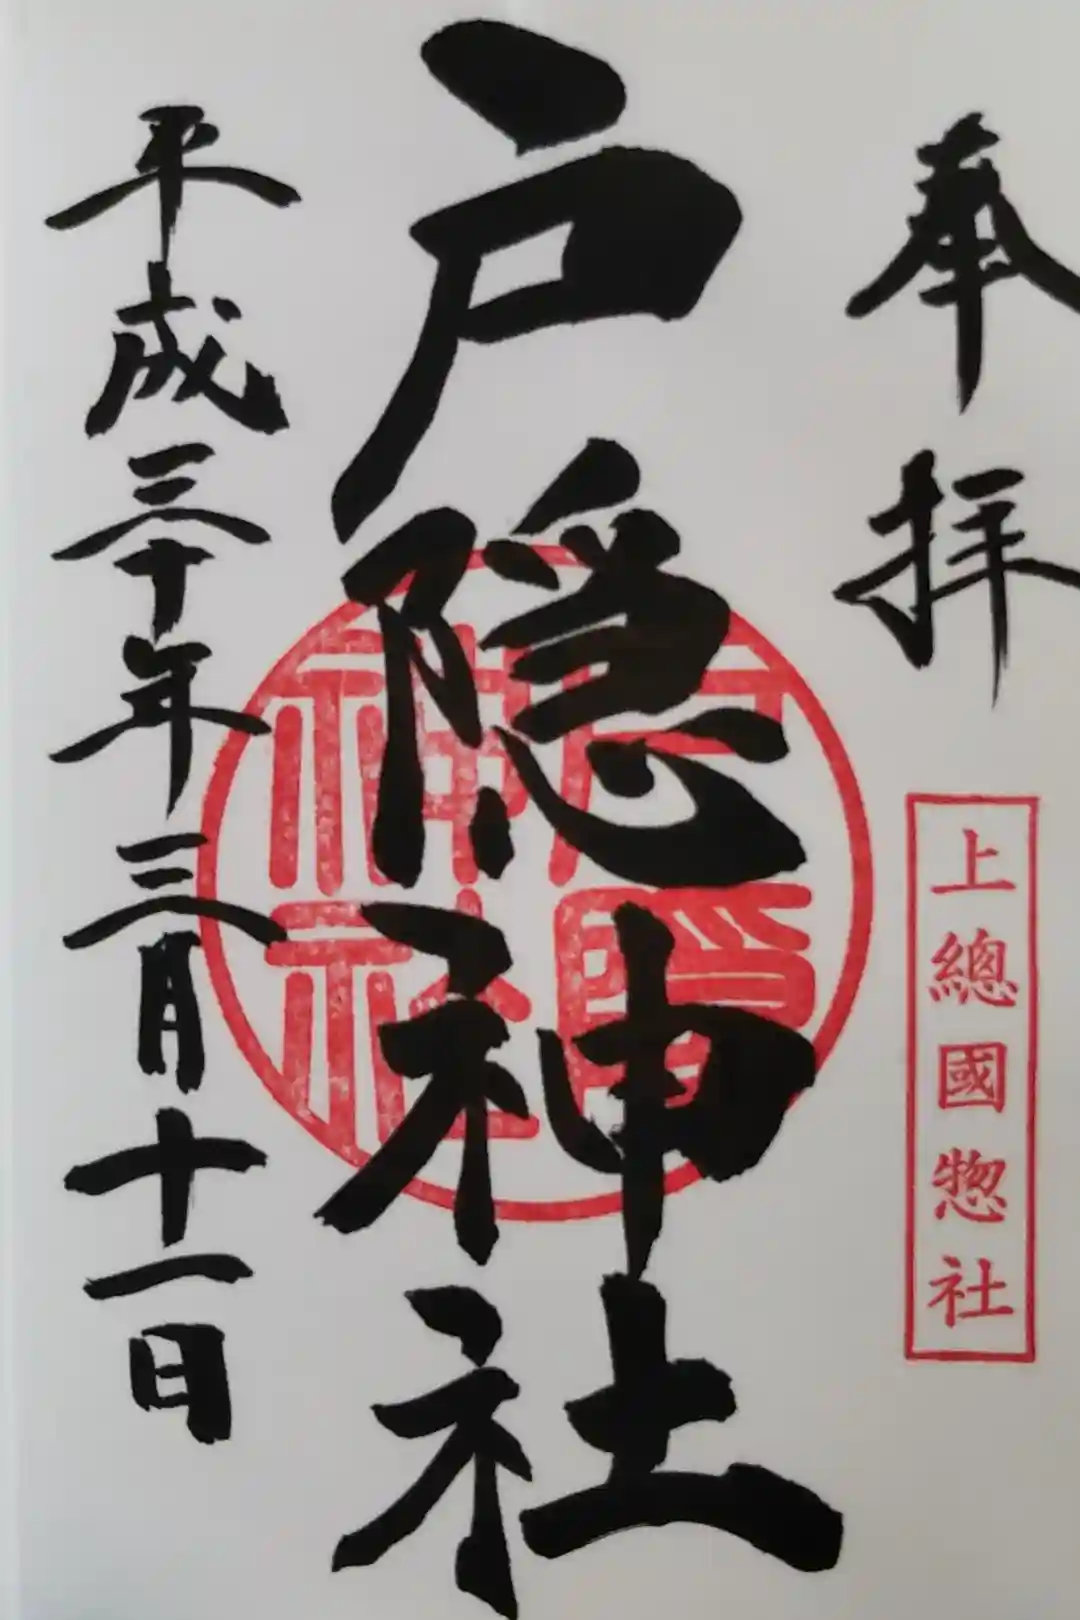 奉拝
上總國惣社
戸隠神社
戸隠神社
平成三十年三月十一日